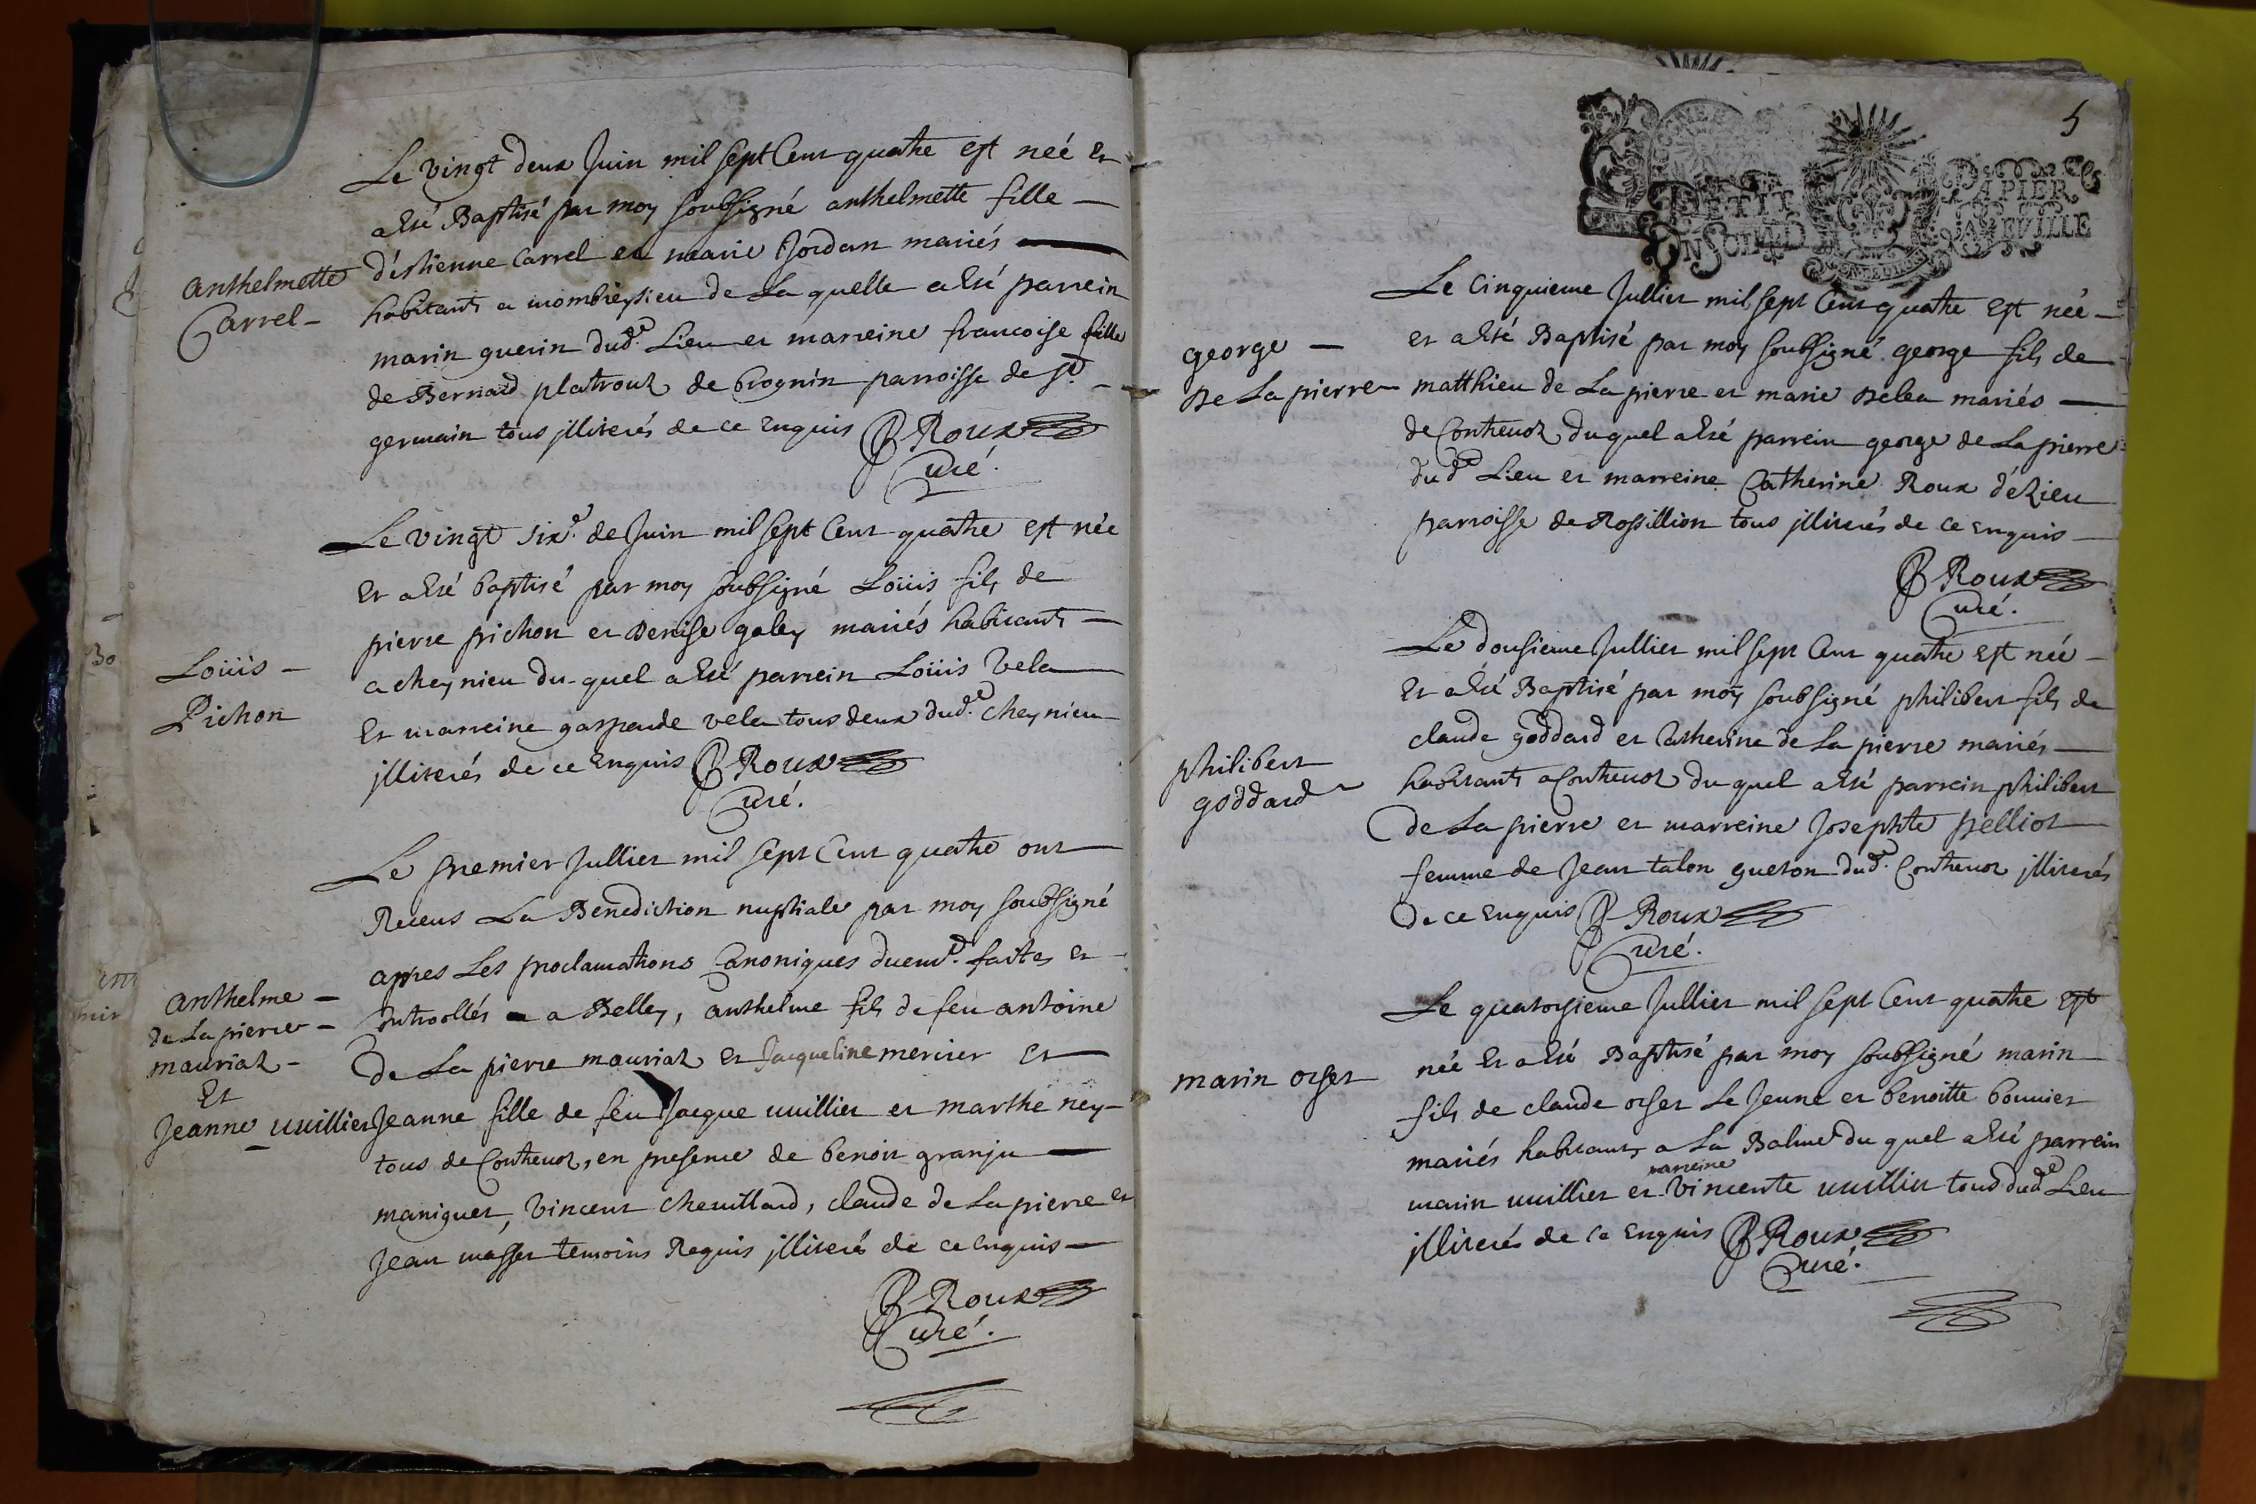 Le vingt deux Juin mil sept Cent quatre est neé et
a Eté Baptisé par moy soubsigné anthelmette fille
d'estienne Carrel et marie Jordan mariés
anthelmette
Carrel
habitants a mombreysieu de La quelle a Eté parrein
marin guerin dud.e Lieu et marreine francoise fille
de Bernard platrouz de brognin parroisse de St.
germain tous illiterés de ce Enquis B Roux
Curé.
Le vingt six.e de Juin mil sept Cent quatre est née
Et a Eté baptisé par moy soubsigné Loüis fils de
pierre pichon et Denise galey mariés habitants
Loüis
Pichon
a cheynieu du quel a Eté parrein Loüis Vela
Et marreine gasparde vela tous deux dud.e cheynieu
illiterés de ce Enquis B Roux
Curé.
Le premier Jullier mil sept Cent quatre ont
Receus La Benediction nuptiale par moy soubsigné
apres Les proclamations Canoniques duem.t faites et
anthelme
de La pierre
mauriaz
Et
Jeanne vuillier
Controllés a Belley, anthelme fils de feu antoine
de La pierre mauriaz et Jacqueline mercier et
Jeanne fille de feu Jacque vuillier et marthe ney
tous de Contrevoz, en presence de benoit granju
maniguet, Vincent chevillard, claude de La pierre et
Jean masset temoins Requis illiterés de ce enquis
B Roux
Curé.
5
PETIT PAPIER
Le Cinquieme Jullier mil sept Cent quatre Est née
et a Eté Baptisé par moy soubsigné george fils de
george
De La pierre
matthieu de La pierre et marie Belea mariés
de Contrevoz duquel a Eté parrein george de La pierre
dud.e Lieu et marreine Catherine Roux d'éZieu
parroisse de Rossillion tous illiterés de ce Enquis
B Roux
Curé.
Le dousieme Jullier mil sept Cent quatre Est née
Et a Eté Baptisé par moy soubsigné philibert fils de
claude goddard et Catherine de La pierre mariés
philibert
goddard
habitants a Contrevoz du quel a Eté parrein philibert
de La pierre et marreine Josephte pelliot
femme de Jean talon gueton dud.e Contrevoz illiterés
de ce Enquis B Roux
Curé.
Le quatorsieme Jullier mil sept Cent quatre Est
née Et a Eté Baptisé par moy soubsigné marin
marin orset
fils de claude orset Le Jeune et benoitte bonnier
mariés habitants a La Balme du quel a Eté parrein
marreine
marin vuillier et Vincente vuillier tous dud.e Lieu
illiterés de ce Enquis B Roux
Curé.